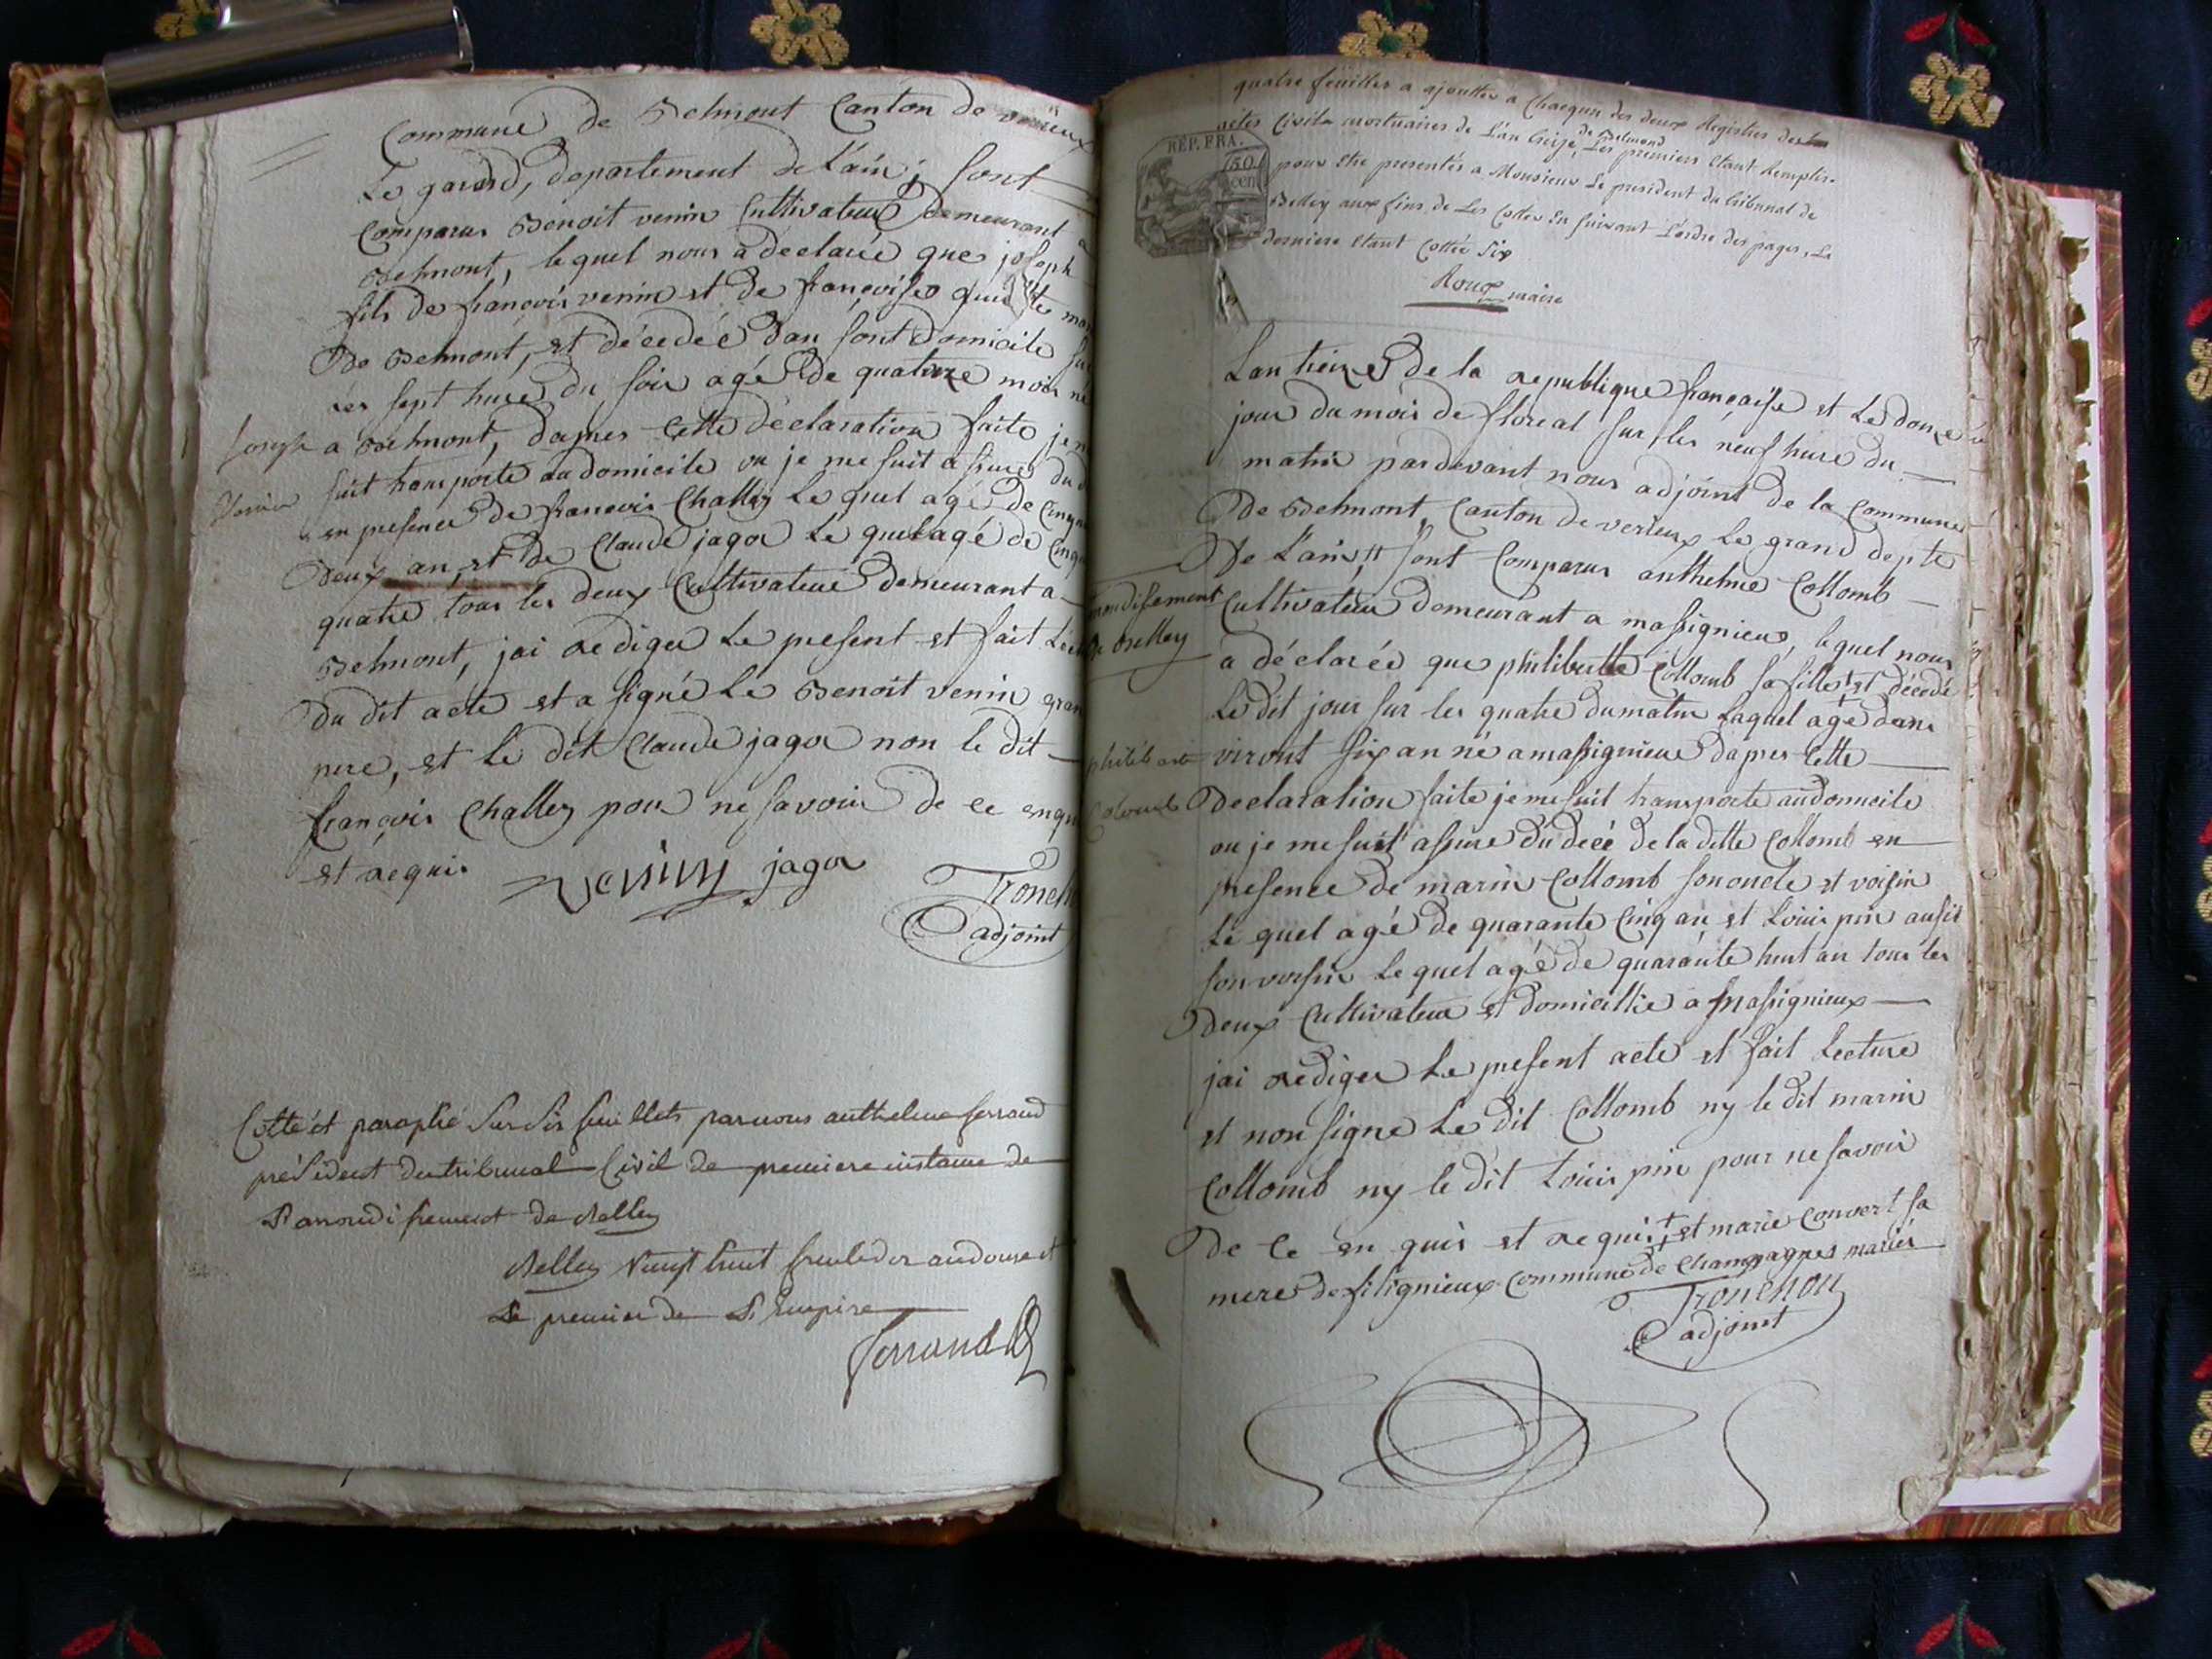 Commune de Belmont Canton de verieux
Le garand, departement de L'ain; sont
Comparus Benoit venin Cultivateur demeurant a
Belmont, lequel nous a declarée que joseph
fils de françois venin et de françoise
de Belmont, et décedéé dan sont domicile
Les sept hure du soir agé de quatorze mois né
a Belmont, dapres Cette déclaration faite je
Joseph
suit transporte au domicile ou je me suit assure du
Venin
en presence de francois Challey Le quel agé de
deux an, et de Claude jagor Le quel agé de
quatre tous les deux Cultivateur demeurant a
Belmont, jai rediger Le present et fait
du dit acte et a signé Le Benoit venin
pere, et Le dit Claude jagor non le dit
françois Challey pour ne savoir de ce
est requis
venin jagor
adjoint
Cotté et paraphé sur six feuillets par nous anthelme ferrand
président du tribunal Civil de premiere instance de
L'arrondissement de Belley
Belley Vingt huit an douze et
Le premier de L'Empire
ferrand
quatre feuilles a ajoutter a Chacqun des deux Registres des
actes Civils mortuaires de L'an treize, de Belmond Les premiers Etant Remplis.
REP. FRA.
50
cen
pour Etre presentés a Monsieur Le president du tribunal de
Belley aux fins de Les Cotter En suivant L'ordre des pages, La
derniere Etant Cottée Six
Roux maire
Lan treize de la republique française et Le douze
jour du mois de floreal sur les neuf hure du
matin pardevant nous adjoint de la Commune
de Belmont, Canton de verieux Le grand depte
De L'ain, sont Comparus anthelme Collomb
arrondisement
de Belley
Cultivateur demeurant a massignieu, lequel nous
a déclarée que philiberte Collomb sa fille + et décedé
Le dit jour sur les quatre du matin Laquel agé dans
viront six an né a massignieu dapres Cette
philiberte
Colomb
Declaration faite je me suit transporte au domicile
ou je me suit assure du décé de la ditte Collomb en
presence de marin Collomb son oncle et voisin
Le quel agé de quarante Cinq an et Louis pin ausit
son voisin Le quel agé de quarante huit an tous les
deux Cultivateur et domicillié a Massignieux
jai rediger Le present acte et fait Lecture
et non signe Le dit Collomb ny le dit marin
Collomb ny le dit Louis pin pour ne savoir
De ce en quis et requis, + et marie Convert sa
mere de filignieux Commune de Champagnes mariés
Tronchon
adjoint